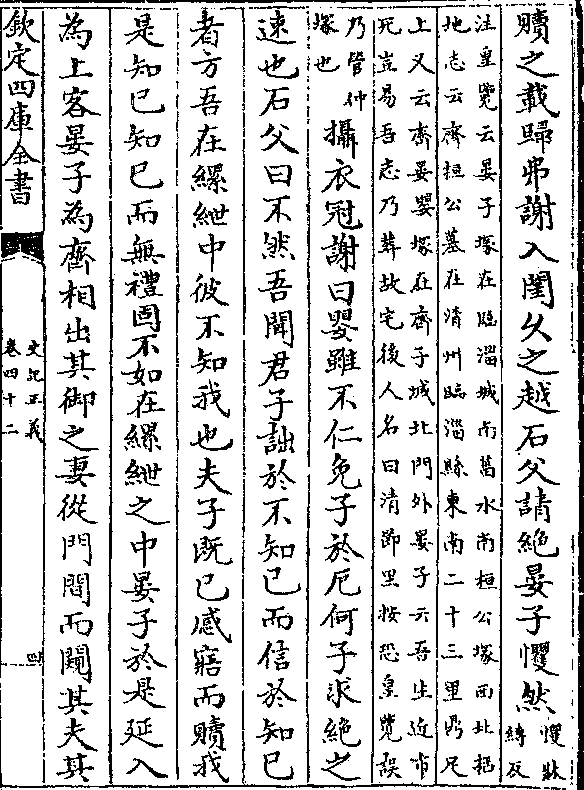 贖之載歸弗謝入閨久之越石父請絶晏子懼然懼牀縛反
注皇覽云晏子塚在臨淄城南菑水南桓公塚西北括
地志云齊桓公墓在清州臨淄縣東南二十三里鼎足
上又云齊晏嬰塚在齊子城北門外晏子云吾生近市
死豈易吾志乃葬故宅後人名曰清節里按恐皇覽誤
乃管仲塚也攝衣冠謝曰嬰雖不仁免子於厄何子求絶之
速也石父曰不然吾聞君子詘於不知已而信於知已
者方吾在縲紲中彼不知我也夫子既已感寤而贖我
是知已知已而無禮固不如在縲紲之中晏子於是延入
為上客晏子為齊相出其御之妻從門間而闚其夫其
欽定四庫全書
史記正義
卷四十二